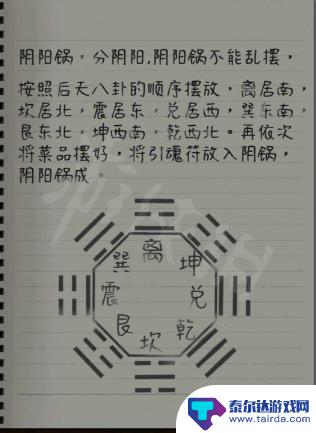 阴阳锅，分阴阳，阴阳锅不能乱摆，
按照后天八卦的顺序摆放，离居南，
坎居北，震居东，兑居西，巽东南，
艮东北，坤西南，乾西北。再依次
将菜品摆好，将引魂符放入阴锅，
阴阳锅成。
离
巽 坤
震 兑
艮 乾
坎
泰尔达游戏网
www.tairda.com